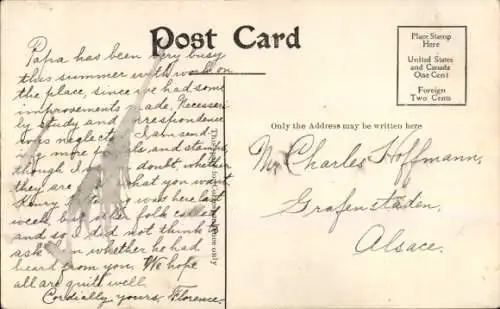 Post Card
Place Stamp
Here
United States
and Canada
One Cent
Foreign
Two Cents
Only the Address may be written here
Papa has been very busy
this summer with work on
the place, since we had some
improvements made. Necessari-
ly study and correspondence
was neglected. I am send-
ing more and stamps,
though I doubt, whether
they are what you want.
was here last
week, but other folk called
and so I did not think to
ask him whether he had
heard from you. We hope
all are quite well.
Cordially yours, Florence.
Mr. Charles Hoffmann,
Grafenstaden,
Alsace.